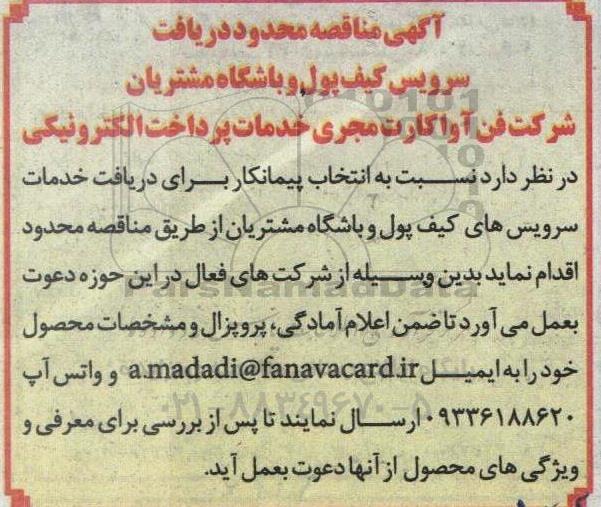 آگهی مناقصه محدود دریافت
سرویس کیف پول و باشگاه مشتریان
شرکت فن آوا کارت مجری خدمات پرداخت الکترونیکی
در نظر دارد نسبت به انتخاب پیمانکار برای دریافت خدمات
سرویس های کیف پول و باشگاه مشتریان از طریق مناقصه محدود
اقدام نماید بدین وسیله از شرکت های فعال در این حوزه دعوت
بعمل می آورد تا ضمن اعلام آمادگی، پروپزال و مشخصات محصول
خود را به ایمیل a.madadi@fanavacard.ir و واتس آپ
۰۹۳۳۶۱۸۸۶۲۰ ارسال نمایند تا پس از بررسی برای معرفی و
ویژگی های محصول از آنها دعوت بعمل آید.
ParsNamadData
۰۲۱-۸۸۳۴۹۶۷۰-۵